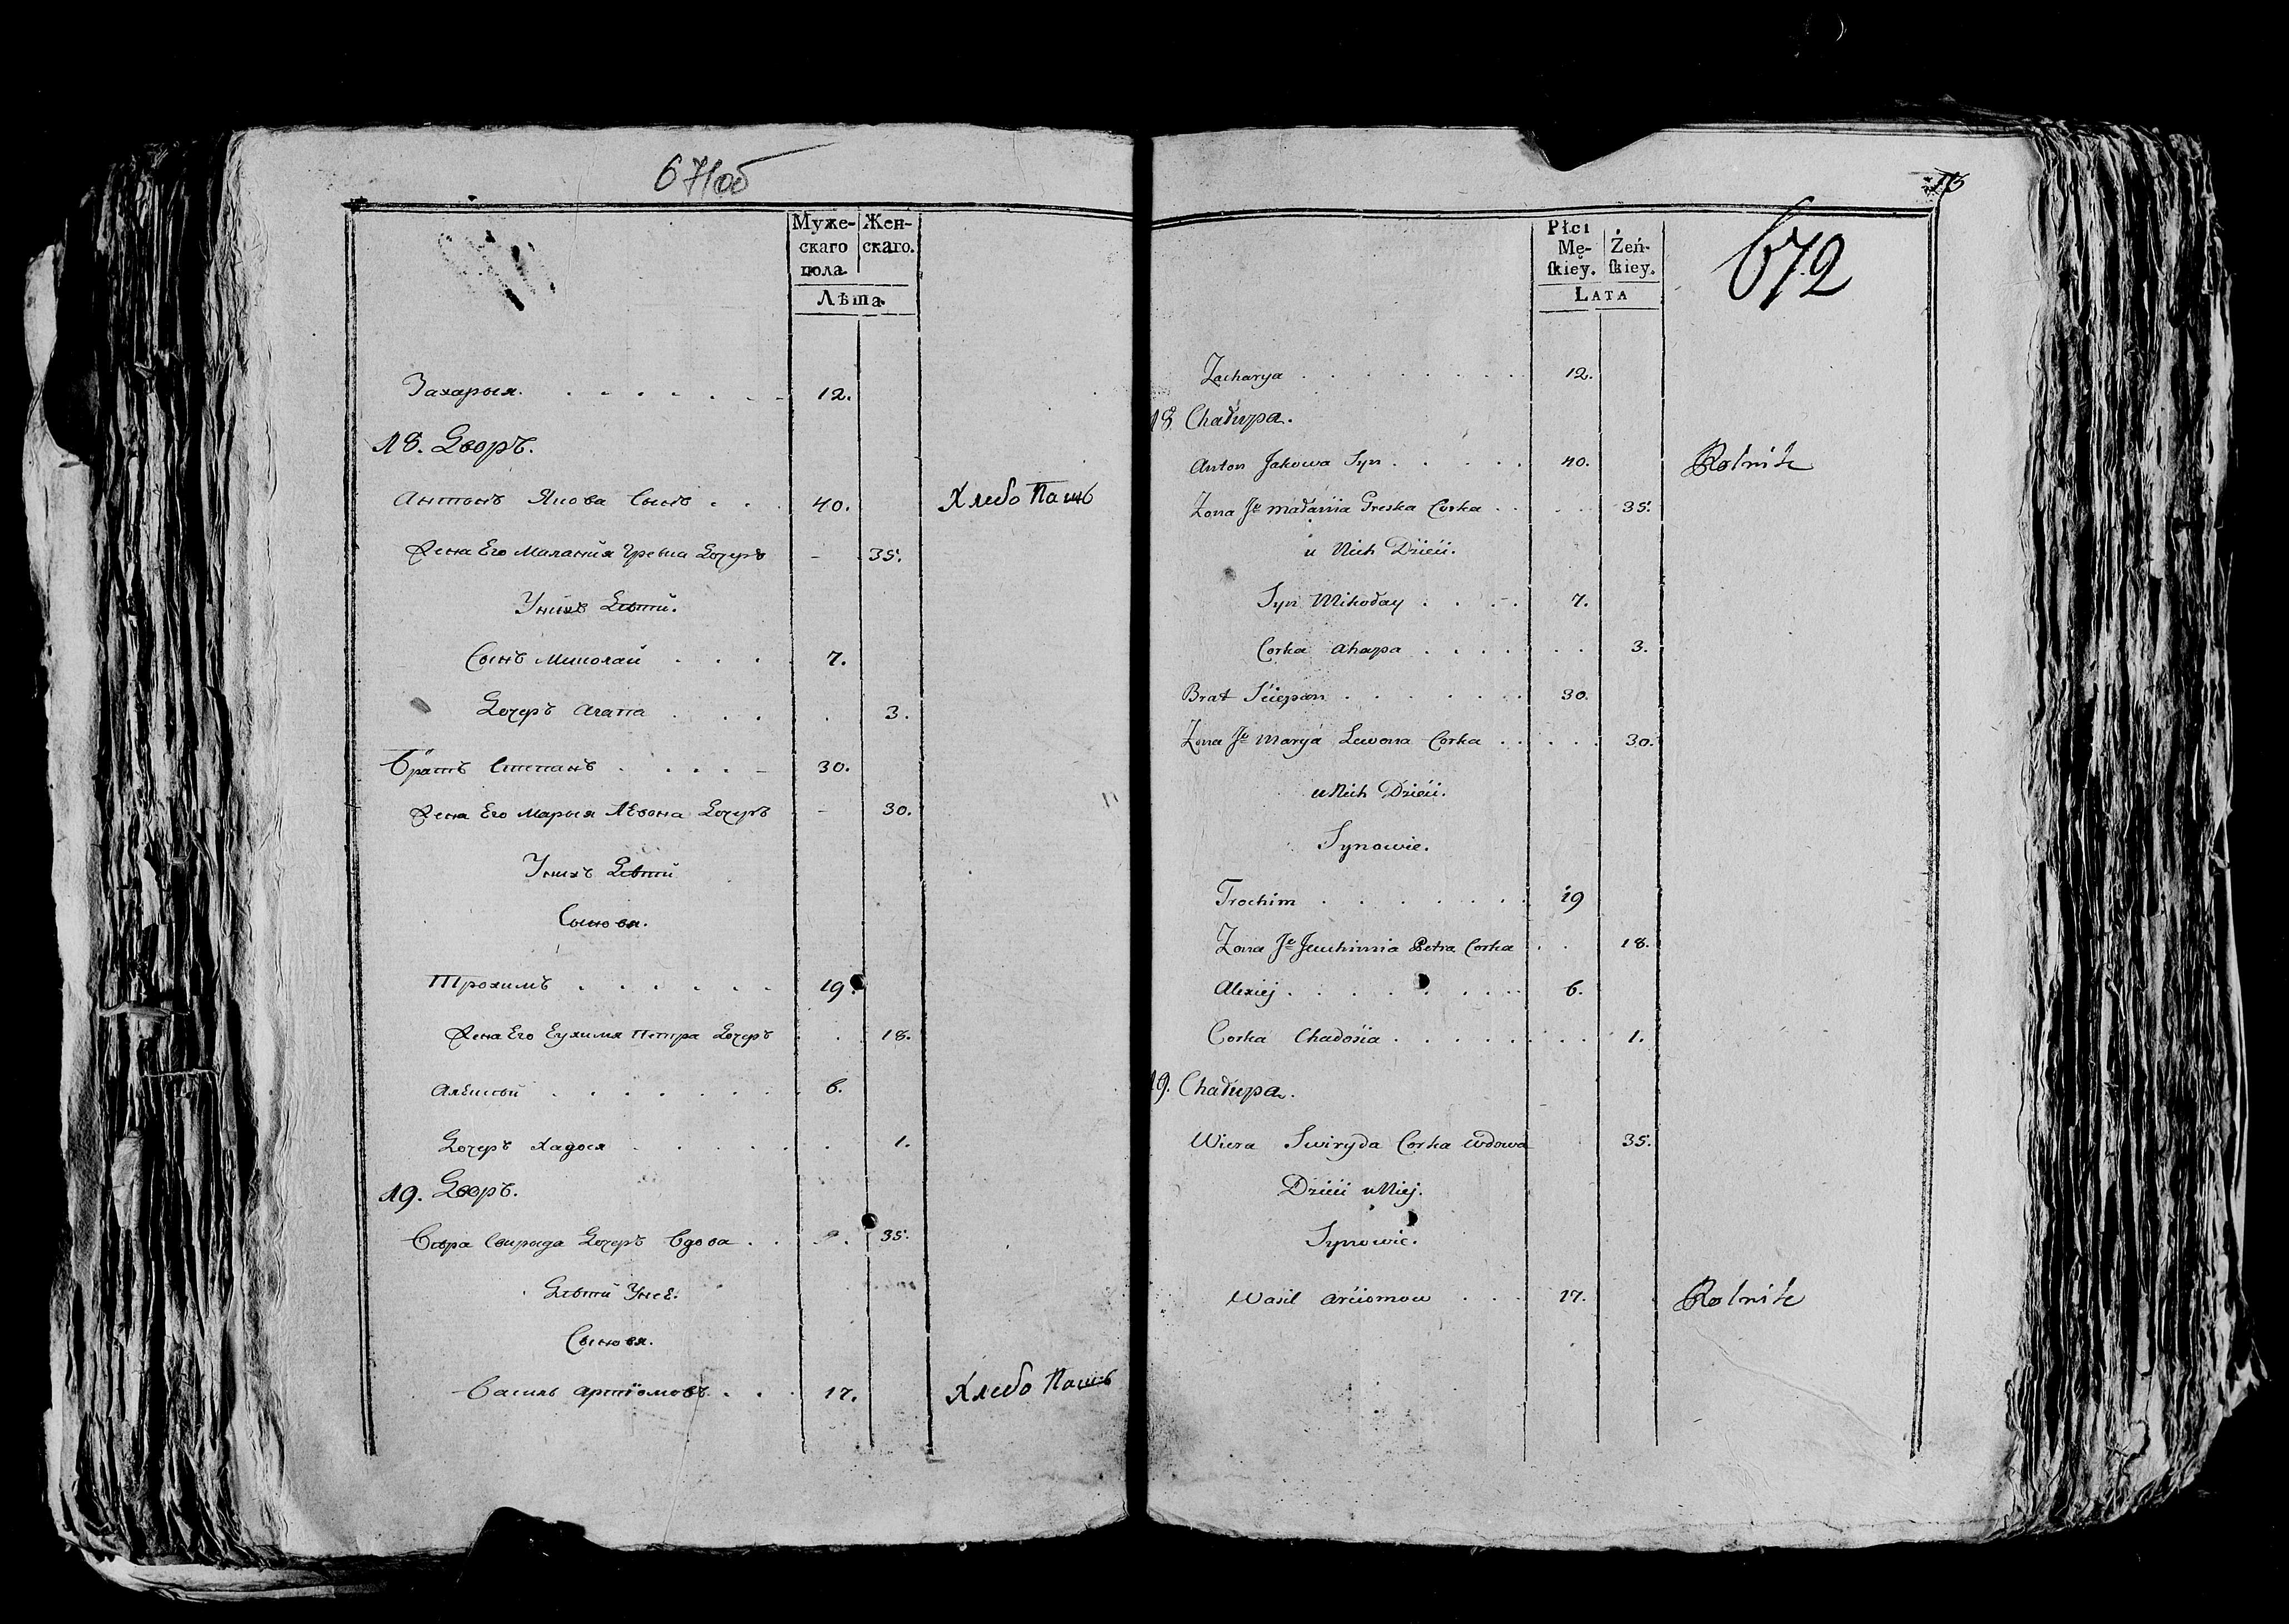 671об
Муже-
скаго
пола
Жен-
скаго.
Лѣта.
Захарыя. 12.
18. Дворъ.
Антонъ Якова Сынъ 40. Хлебо Пашъ
Жена Его Малания Грека Дочеръ 35.
Унихъ Дѣтй.
Сынъ Миколай 7.
Дочеръ Агапа 3.
Братъ Степанъ 30.
Жена Его Марыя Лѣвона Дочеръ 30.
Унихъ Дѣтй
Сыновя.
Трохимъ 19.
Жена Его Еухимя Петра Дочеръ 18.
Алексей 6.
Дочеръ Хадося 1.
19. Дворъ.
Вѣра Свирыда Дочеръ Вдова 35.
Дѣти Унеё.
Сыновя.
Василь Артіомовъ 17. Хлебо Пашъ
672
Płci
Mę-
ſkiey.
Żeń-
ſkiey.
Lata
Zacharya 12.
18. Chałupa.
Anton Jakowa Syn 40. Rolnik
Zona Je Małania Greska Corka 35.
u Nich Dzieći.
Syn Mikołay 7.
Corka Ahapa 3.
Brat Sciepan 30.
Zona Je Marya Lewona Corka 30.
u Nich Dzieći.
Synowie.
Trochim 19
Zona Je Jeuchimia Petra Corka 18.
Alexiej 6.
Corka Chadosia 1.
19. Chałupa.
Wiera Swiryda Corka Wdowa 35.
Dzieći u Niej.
Synowie.
Wasil Arciomow 17. Rolnik